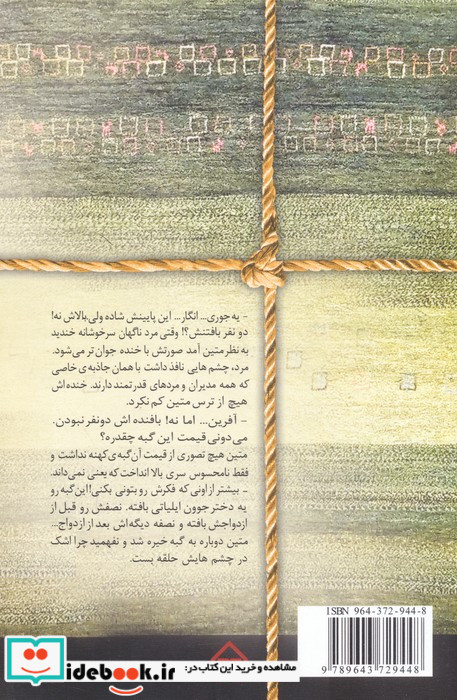 - یه جوری... انگار... این پایینش شاده ولی بالاش نه!
دو نفر بافتنش؟! وقتی مرد ناگهان سرخوشانه خندید
به نظر متین آمد صورتش با خنده جوان تر می‌شود.
مرد، چشم هایی نافذ داشت با همان جاذبه ی خاصی
که همه مدیران و مردهای قدرتمند دارند. خنده اش
هیچ از ترس متین کم نکرد.
- آفرین... اما نه! بافنده اش دونفر نبودن.
می دونی قیمت این گبه چقدره؟
متین هیچ تصوری از قیمت آن گبه ی کهنه نداشت و
فقط نامحسوس سری بالا انداخت که یعنی نمی داند.
- بیشتر از اونی که فکرش رو بتونی بکنی! این گبه رو
یه دختر جوون ایلیاتی بافته. نصفش رو قبل از
ازدواجش بافته و نصفه دیگه اش بعد از ازدواج...
متین دوباره به گبه خیره شد و نفهمید چرا اشک
در چشم هایش حلقه بست.
ISBN 964-372-944-8
9 789643 729448
مشاهده و خرید این کتاب در:
idebook.ir